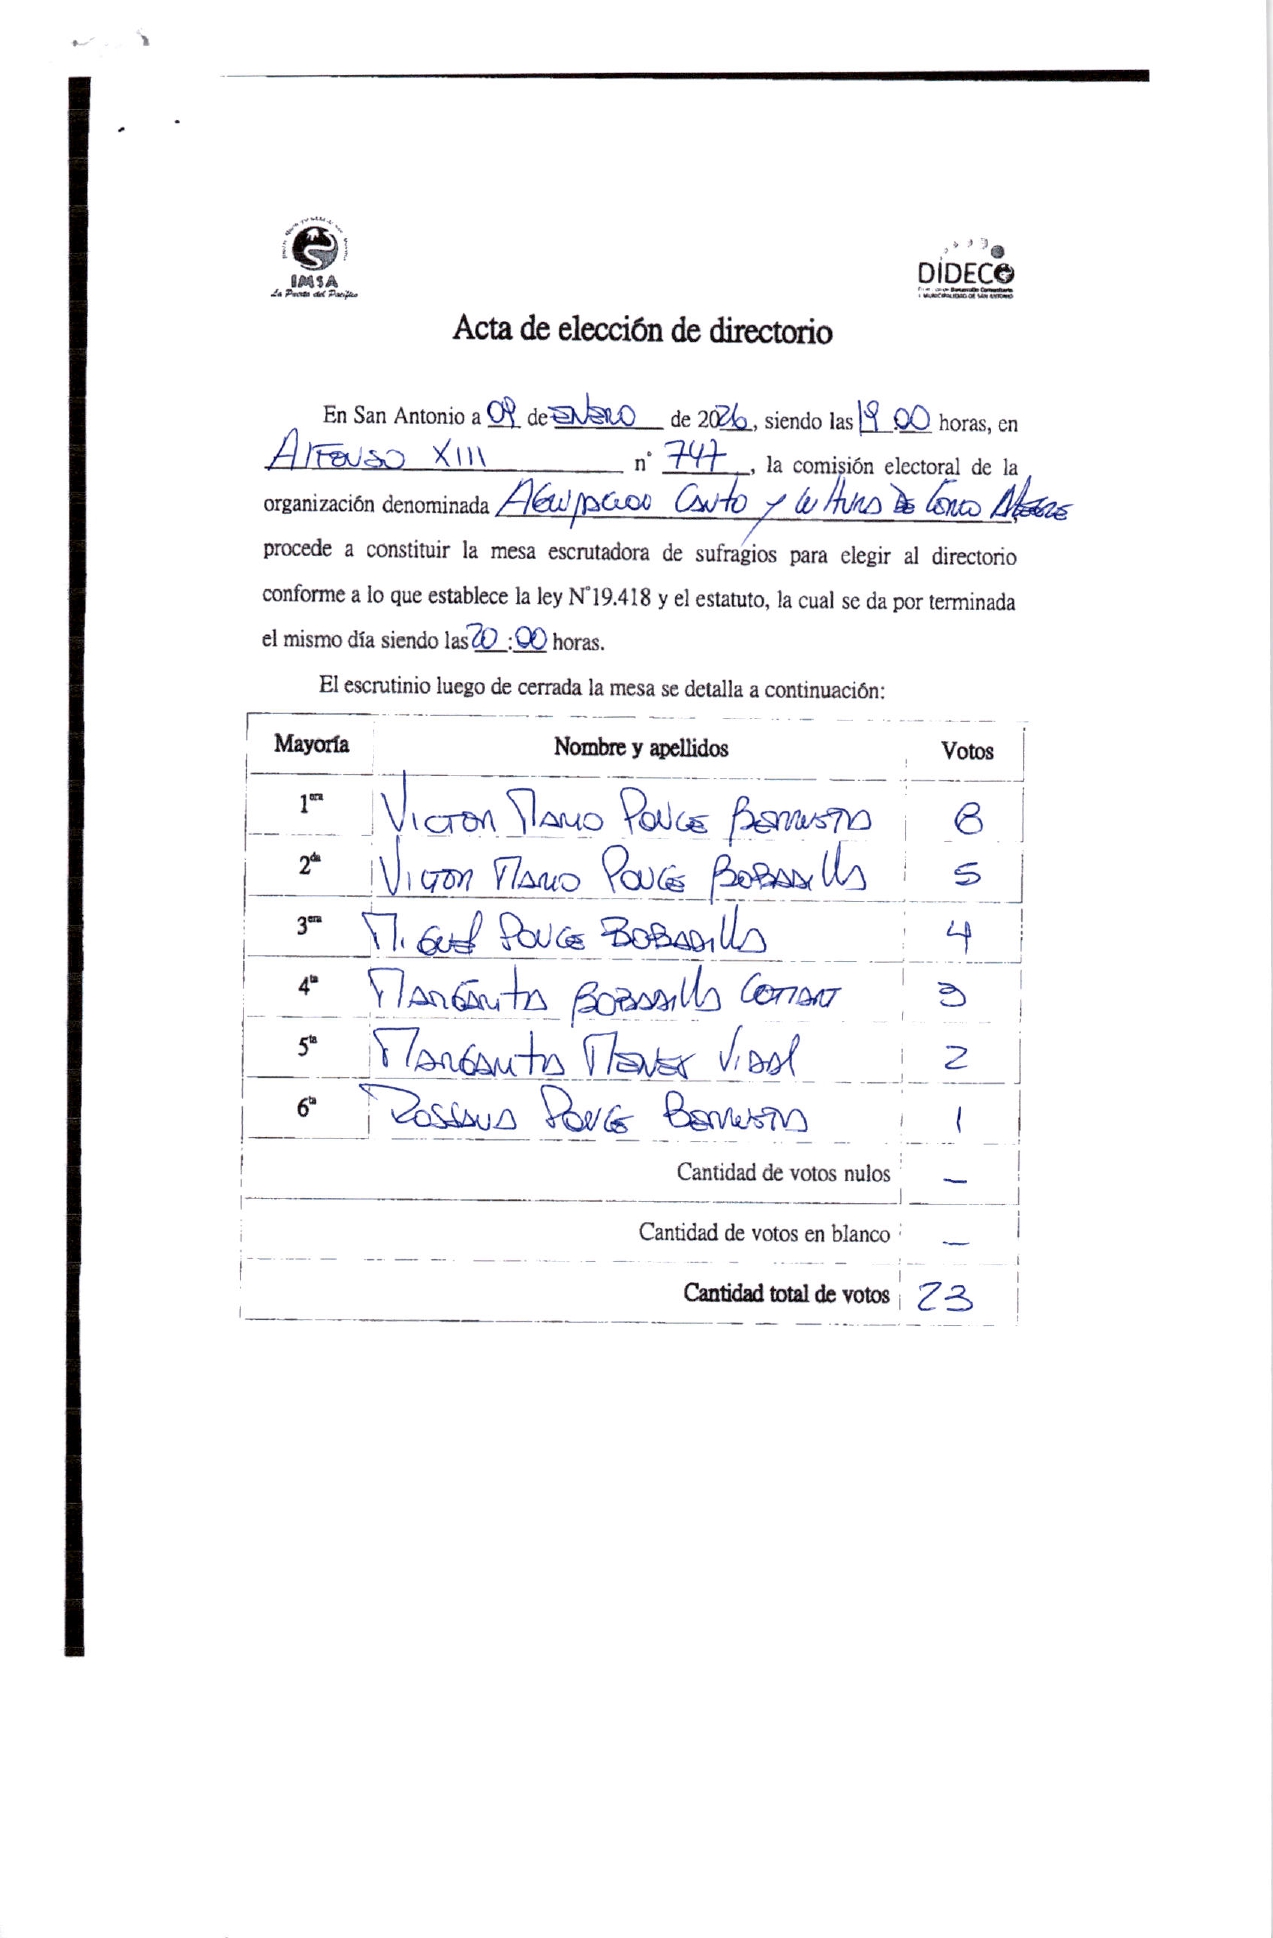 IMSA
La Puerta del Pacífico
DIDECO
MUNICIPALIDAD DE SAN ANTONIO
Acta de elección de directorio
En San Antonio a 09 de ENERO de 2026, siendo las 19 00 horas, en
Alfonso XIII n° 747, la comisión electoral de la
organización denominada Agrupacion Canto y Cultura de Cerco Alegre
procede a constituir la mesa escrutadora de sufragios para elegir al directorio
conforme a lo que establece la ley N°19.418 y el estatuto, la cual se da por terminada
el mismo día siendo las 20:00 horas.
El escrutinio luego de cerrada la mesa se detalla a continuación:
Mayoría Nombre y apellidos Votos
1era Victor Mario Ponce 8
2da Victor Mario Ponce Bobadilla 5
3era Miguel Ponce Bobadilla 4
4ta Margarita Bobadilla 3
5ta Margarita Vidal 2
6ta Rossana Ponce 1
Cantidad de votos nulos –
Cantidad de votos en blanco –
Cantidad total de votos 23